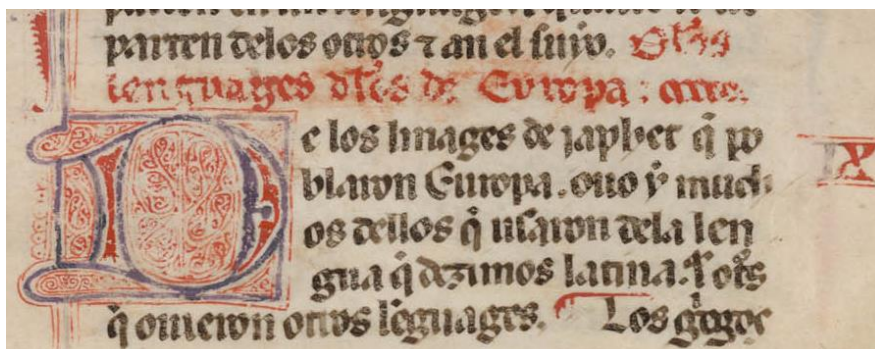 parten delos otros ⁊ an el suyo. Dlos
lenguages dlos de Europa ⁊ cete.
De los linages de japhet q̃ po
blaron Europa. ouo ẏ much
os dellos q̃ usaron dela len
gua q̃ dezimos latina. ⁊ ot̃s
q̃ ouieron otros lẽguages. Los g̃egos
IX